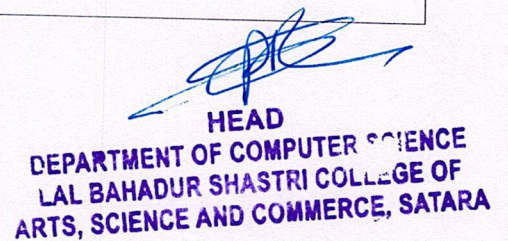 HEAD
DEPARTMENT OF COMPUTER SCIENCE
LAL BAHADUR SHASTRI COLLEGE OF
ARTS, SCIENCE AND COMMERCE, SATARA